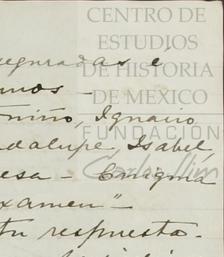 CENTRO DE
ESTUDIOS
DE HISTORIA
DE MEXICO
FUNDACIÓN
Carlos Slim
eguradas é
mos -
toniño, Ignacio
dalupe, Isabel,
esa - Enigma
xamen" -
tu respuesta.